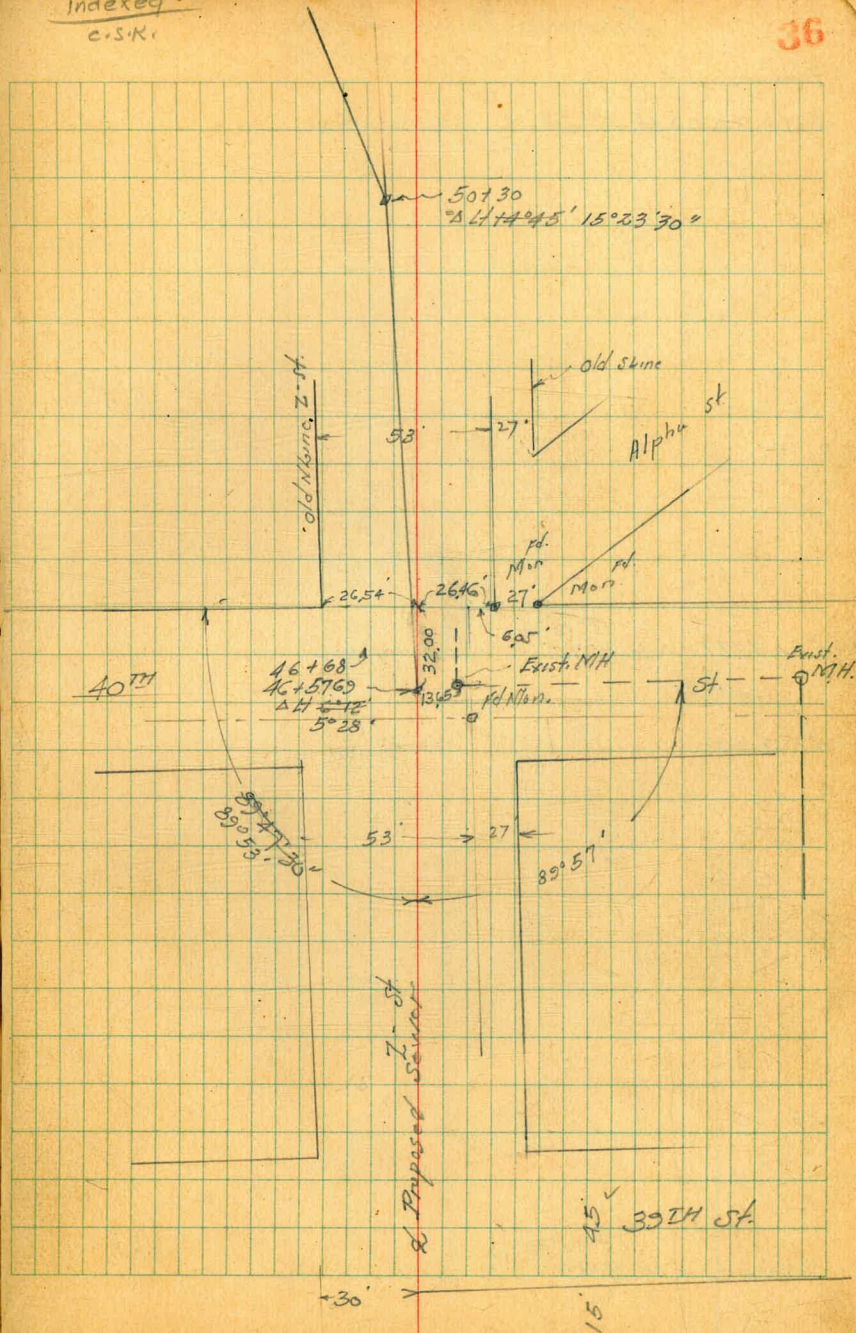 Indexed
C.S.K.
36
50+30
Δ Lt 4°45' 15°23'30"
Old S Line
Old N Line Z - St.
53'
27'
Alpha St
Fd.
Mon
Fd.
Mon
26.54'
26.46'
27'
6.05'
32.00
46+68
46+57.69
Δ Lt 6°12'
5°28'
13.65
Exist. MH
Fd Mon.
40TH
St
Exist.
M.H.
89°47'30"
89°53'
53'
27'
89°57'
Z - St
₵ Proposed Sewer
45'
39TH St.
30'
15'